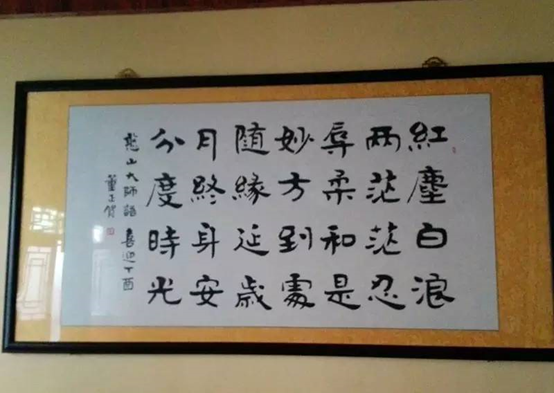 紅塵白浪
两茫茫忍
辱柔和是
妙方到處
随緣延歲
月終身安
分度時光
憨山大師語 喜迎丁酉
董正賀